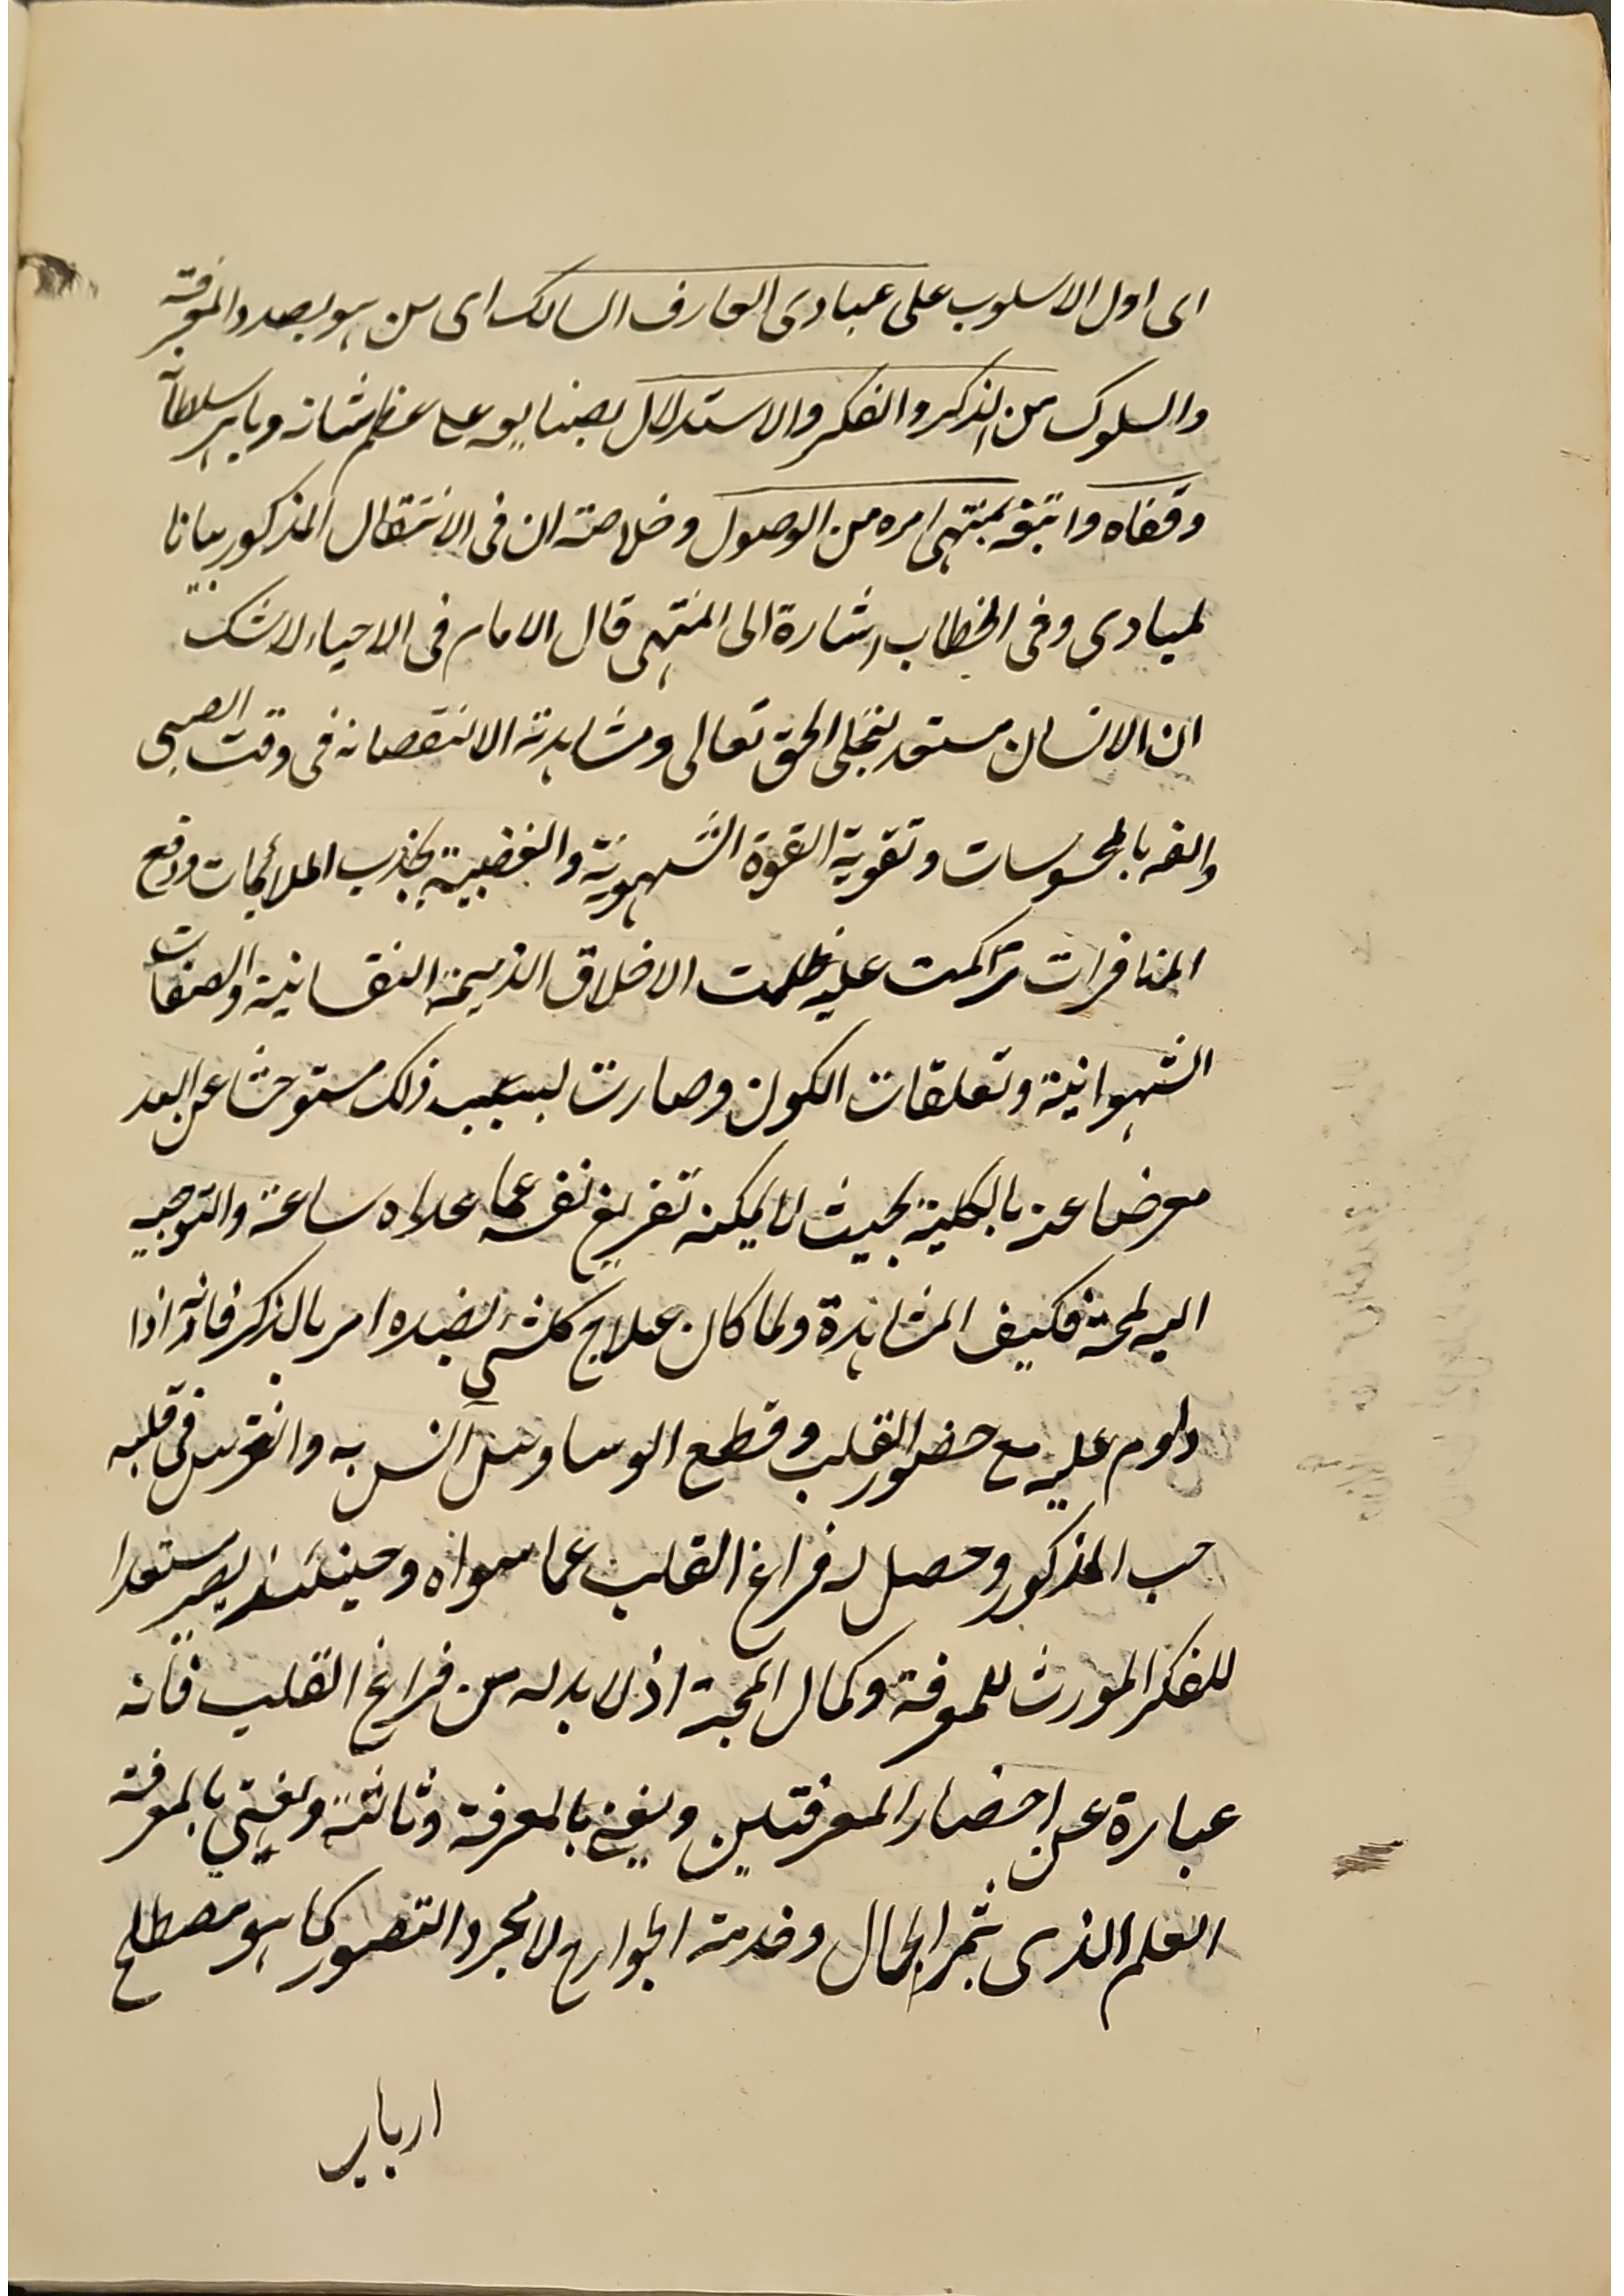 اى اول الاسلوب على مبادى العارف السالك اى من هو بصدد المعرفة
والسلوك من الذكر والفكر والاستدلال بصنايعه على عظم شانه وباهر سلطانه
وقفاه واتبعه بمنتهى امره من الوصول وخلاصته ان فى الانتقال المذكور بيانا
لمبادى وفى الخطاب اشارة الى المنتهى قال الامام فى الاحياء لا شك
ان الانسان مستعد لتجلى الحق تعالى ومشاهدته الا لنقصانه فى وقت الصبى
والفه بالمحسوسات وتقوية القوة الشهوية والغضبية بجذب الملائمات ودفع
المنافرات تراكمت عليه ظلمت الاخلاق الذميمة النفسانية والصفات
الشهوانية وتعلقات الكون وصارت بسبب ذلك مستوحشا عن العد
معرضا عنه بالكلية بحيث لا يمكنه تفريغ نفسه عما عداه ساعة والتوجه
اليه لمحة فكيف المشاهدة ولما كان علاج كلشئ بضده امر بالذكر فانه اذا
داوم عليه مع حضور القلب وقطع الوساوس آنس به وانغرس فى قلبه
حب المذكور وحصل له فراغ القلب عما سواه وحينئذ يصير مستعدا
للفكر المورث للمعرفة وكمال المحبة اذ لا بد له من فراغ القلب فانه
عبارة عن احضار المعرفتين بالمعرفة بالمعرفة
العلم الذى يثمر الحال وخدمة الجوارح لا مجرد التصور كما هو مصطلح
ارباب